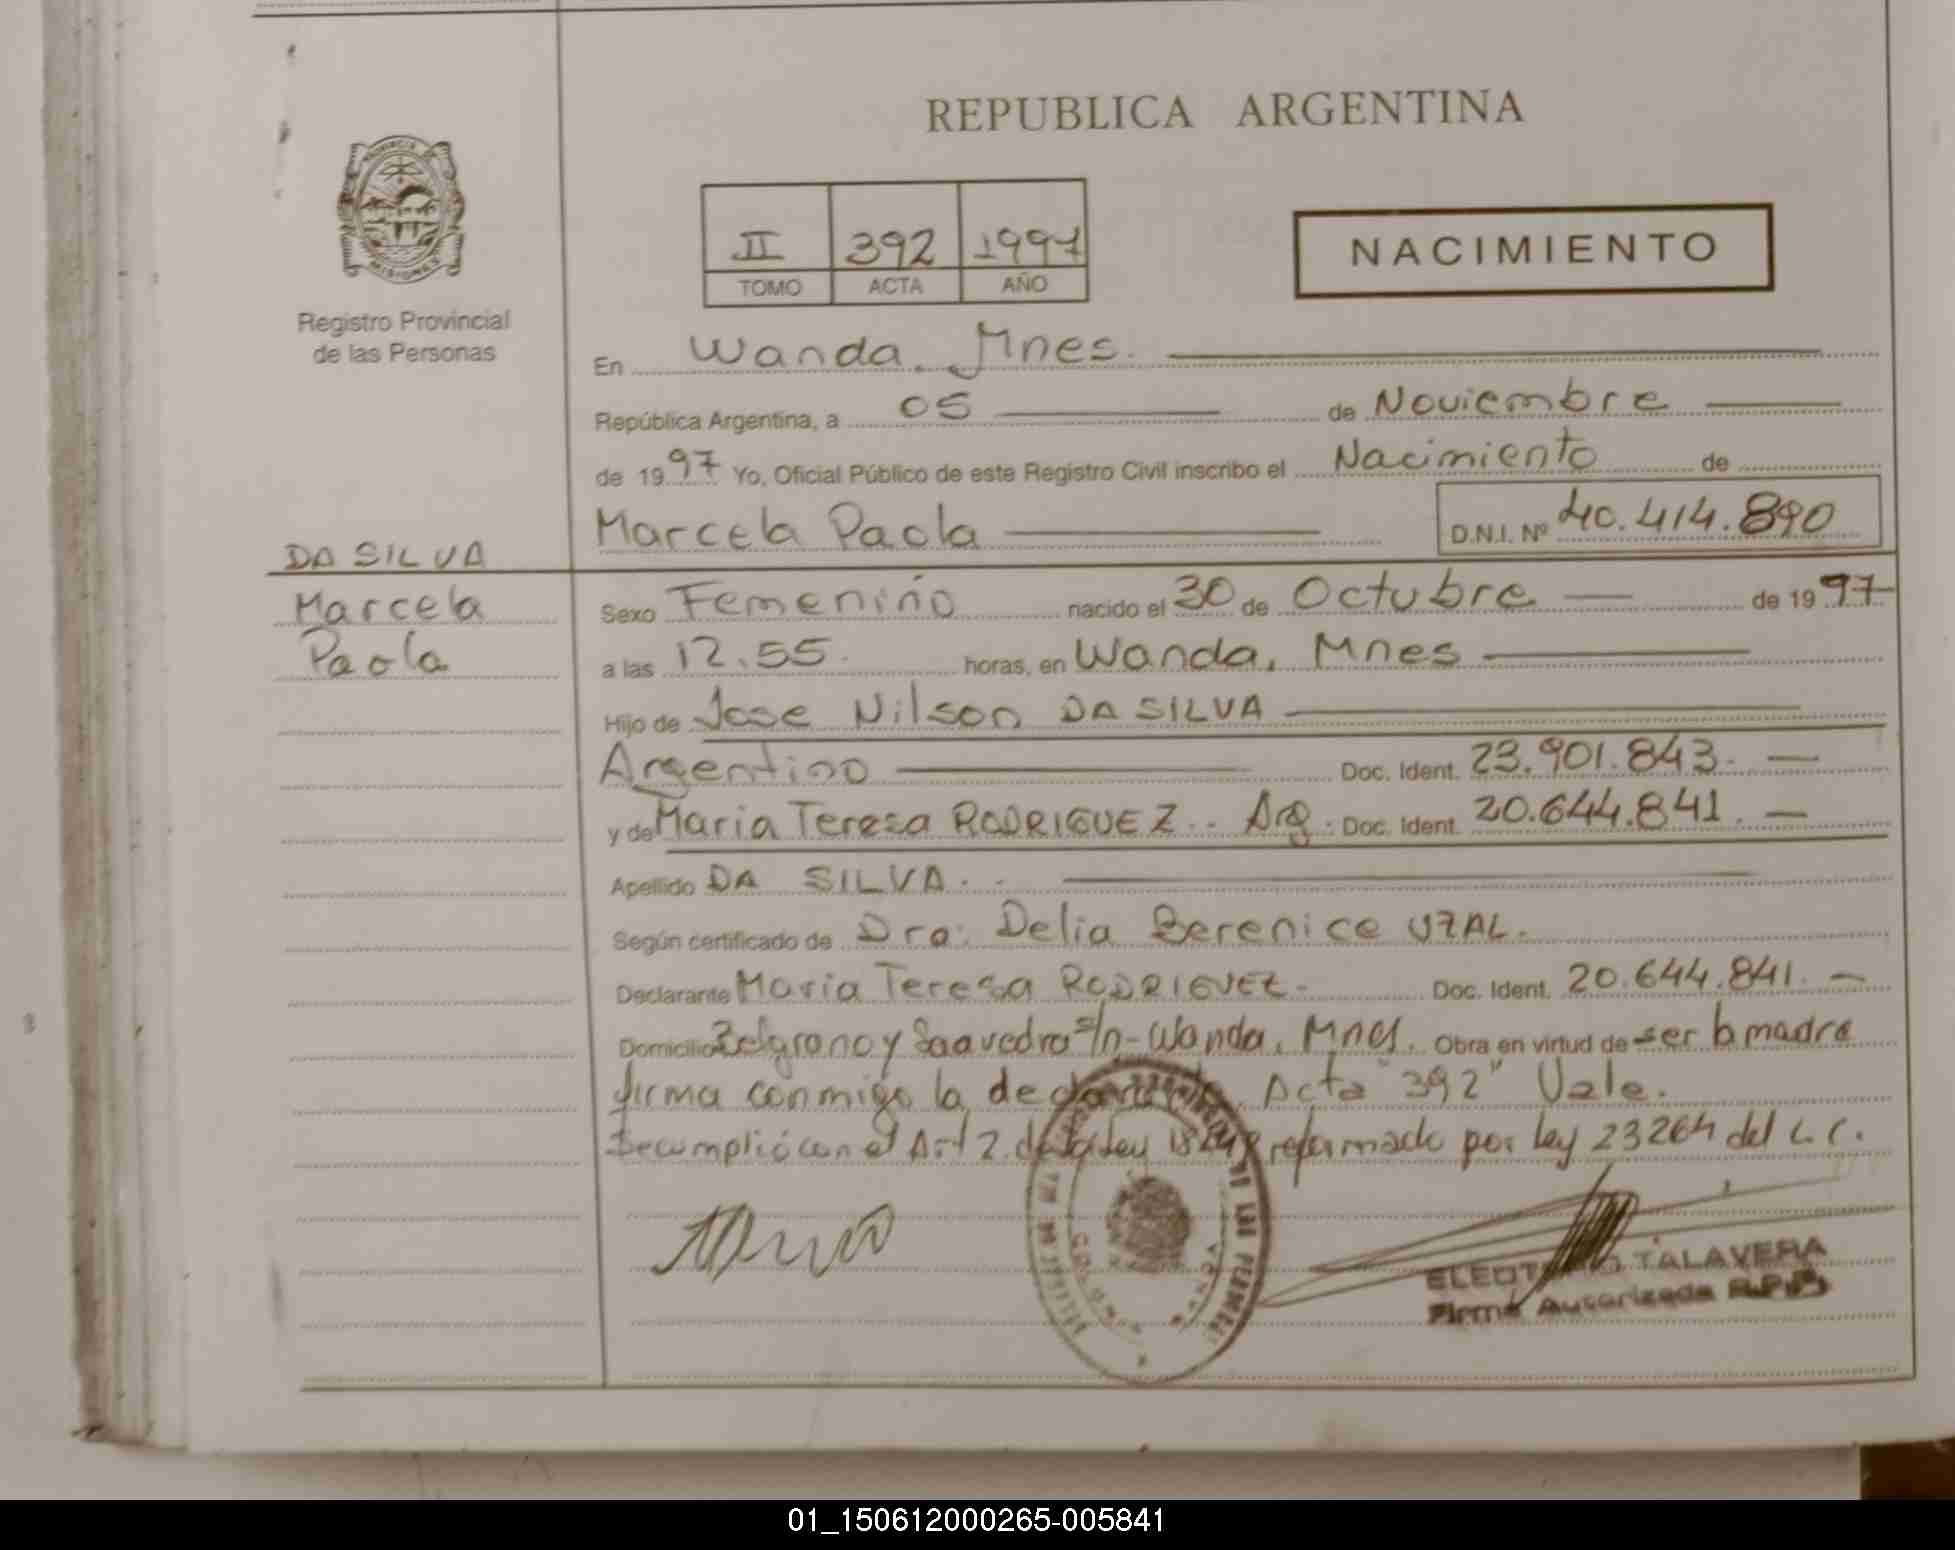 REPUBLICA ARGENTINA
PROVINCIA DE
MISIONES
Registro Provincial
de las Personas
II 392 1997
TOMO ACTA AÑO
NACIMIENTO
En Wanda, Mnes.
República Argentina, a 05 de Noviembre
de 1997 Yo, Oficial Público de este Registro Civil inscribo el Nacimiento de
Marcela Paola D.N.I. Nº 40.414.890
DA SILVA
Marcela
Paola
Sexo Femenino nacido el 30 de Octubre de 1997
a las 12.55. horas, en Wanda, Mnes
Hijo de Jose Nilson DA SILVA
Argentino Doc. Ident. 23.901.843.
y de Maria Teresa RODRIGUEZ.. Arg. Doc. Ident. 20.644.841.
Apellido DA SILVA..
Según certificado de Dra. Delia Berenice UZAL.
Declarante Maria Teresa RODRIGUEZ. Doc. Ident. 20.644.841.
Domicilio Belgrano y Saavedra s/n - Wanda, Mnes. Obra en virtud de ser la madre
firma conmigo la declarante. Acta "392" Vale.
Se cumplió con el Art 2 de la Ley 18248 reformado por ley 23264 del C.C.
TALAVERA
Firma Autorizada R.P.P.
01_150612000265-005841